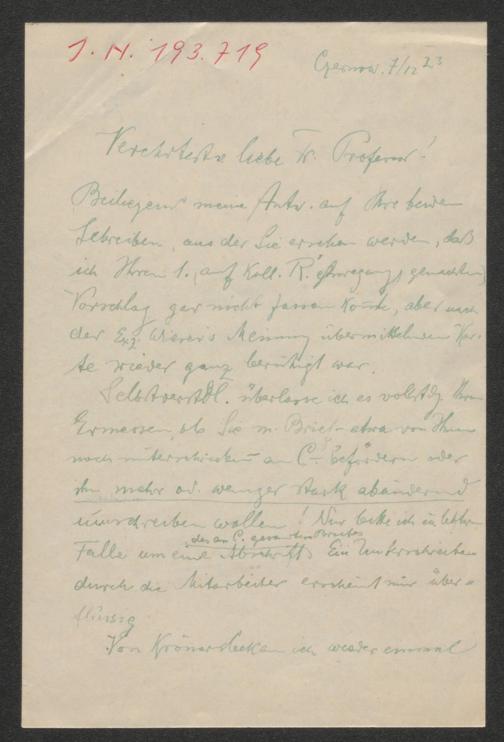 J. N. 193.719
Czernow. 7/12 23
Verehrteste liebe Fr. Professor!
Beiliegend meine Antw. auf Ihre beiden
Schreiben, aus der Sie ersehen werden, daß
ich Ihren 1., auf Koll. R.'s Anregung gemachten
Vorschlag gar nicht fassen konnte, aber nach
der Exz. Wieser's Meinung übermittelnden Kar-
te wieder ganz beruhigt war.
Selbstverstdl. überlasse ich es vollstdg Ihrem
Ermessen, ob Sie m. Brief - etwa von Ihnen
noch unterschrieben - an C. befördern oder
ihn mehr od. weniger stark abändernd
umschreiben wollen! Nur bitte ich in letztem
des an C. gesandten Briefes
Falle um eine Abschrift. Ein Unterschreiben
durch die Mitarbeiter erscheint mir über-
flüssig.
Von Kröner bekam ich wieder einmal